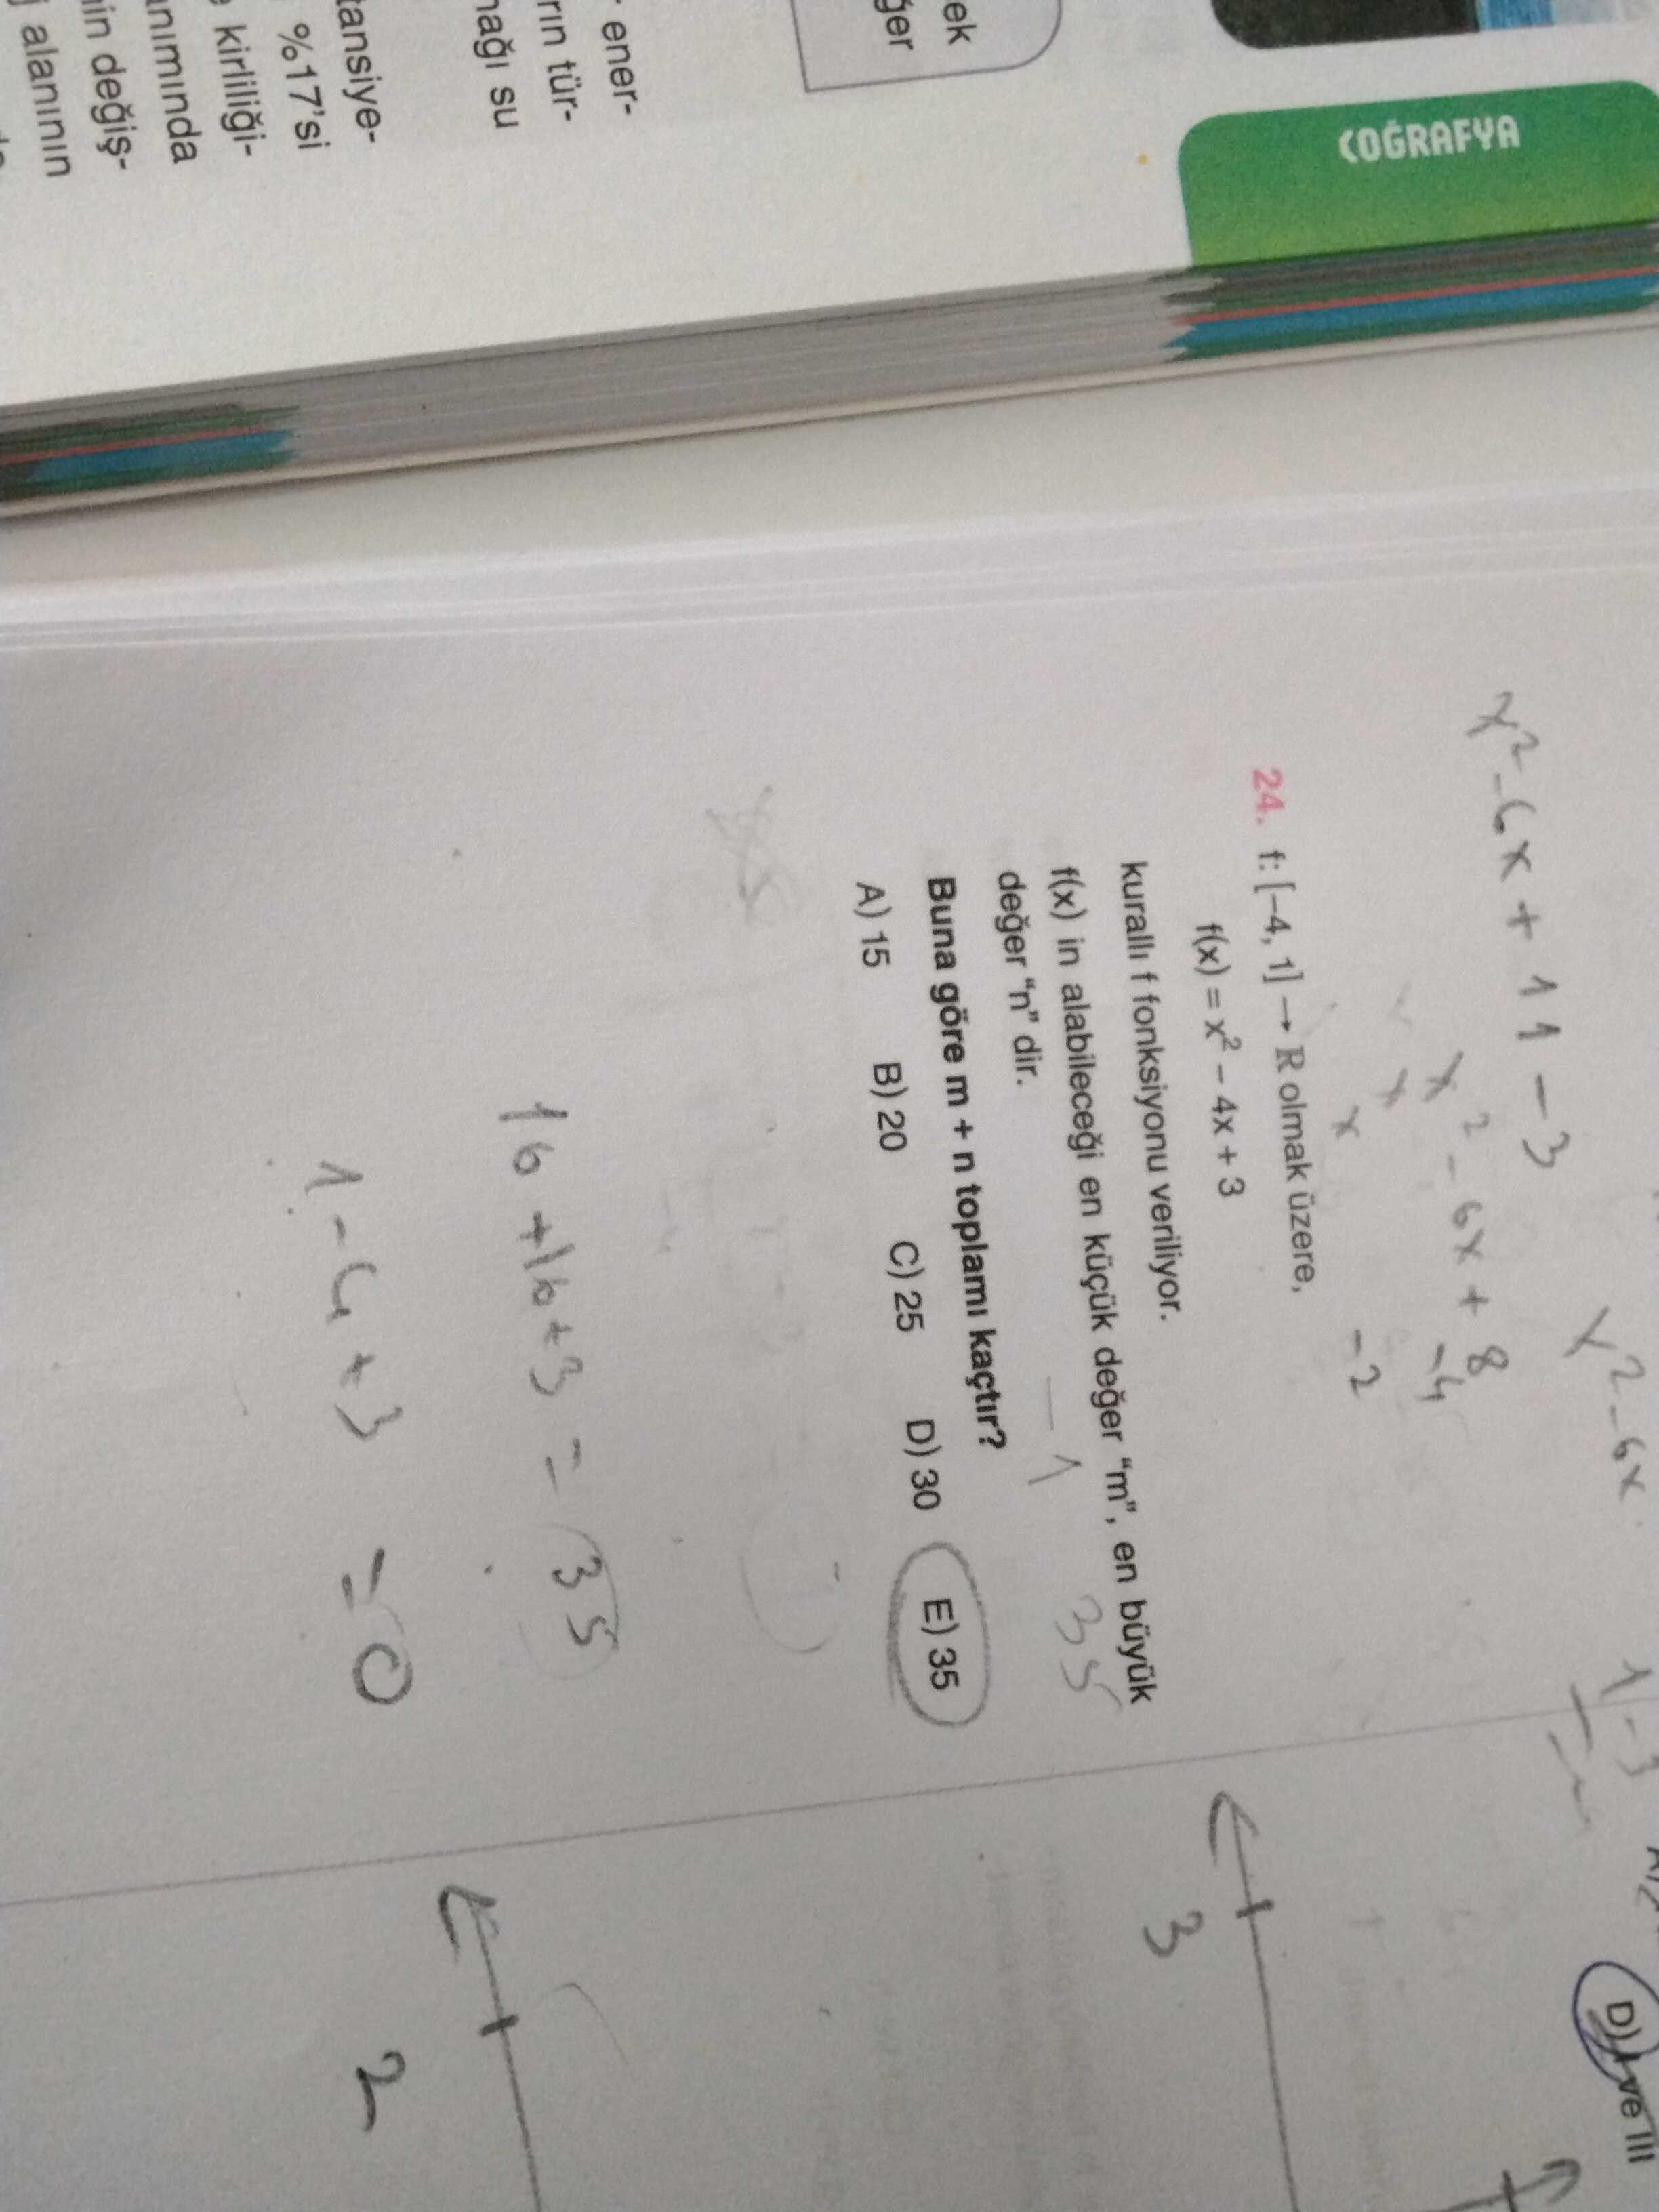 ek
ğer
r ener-
rın tür-
nağı su
tansiye-
%17'si
kirliliği-
anımında
in değiş-
alanının
COĞRAFYA
x² - 6x + 11 - 3
x² - 6x + 8
-4
x
x -2
x² - 6x
24. f: [-4, 1] → ℝ olmak üzere,
f(x) = x² - 4x + 3
kurallı f fonksiyonu veriliyor.
f(x) in alabileceği en küçük değer “m”, en büyük
değer “n” dir.
-1 35
Buna göre m + n toplamı kaçtır?
A) 15 B) 20 C) 25 D) 30 E) 35
16 + 16 + 3 = 35
1 - 4 + 3 = 0
D) I ve III
3
2